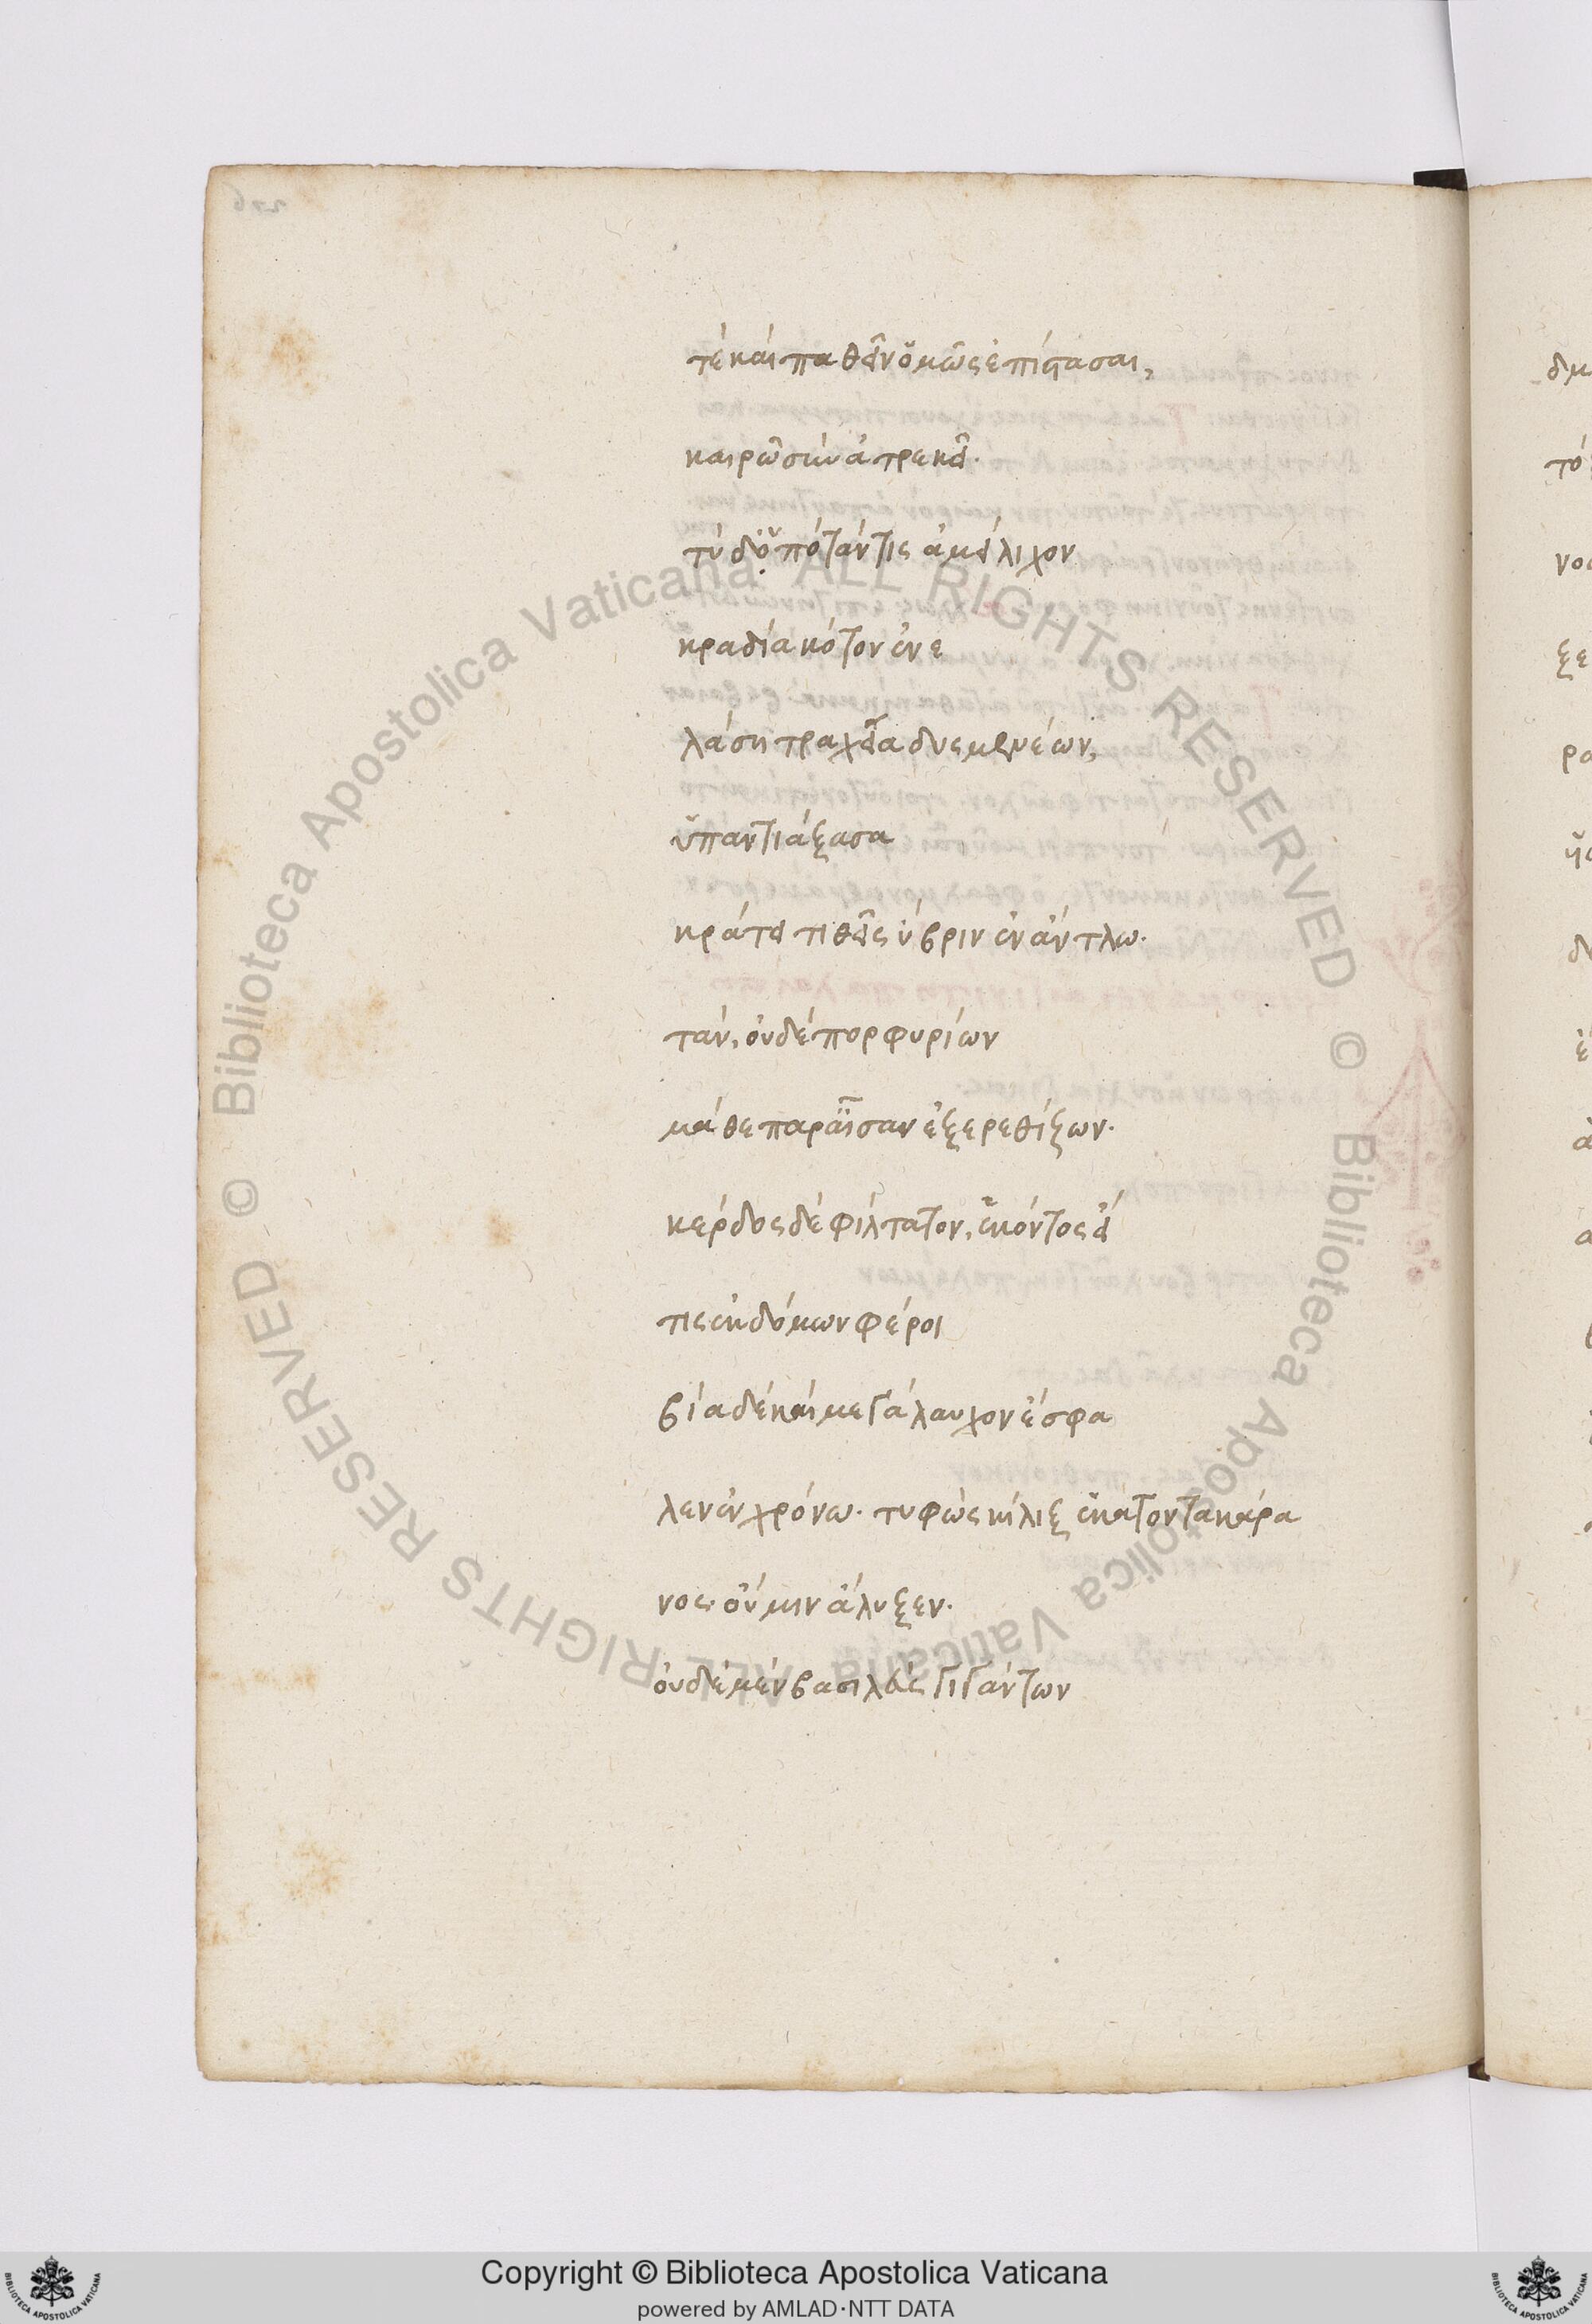 τὲ καὶ παθεῖν ὅμως ἐπίστασαι,
καιρῶ σὺν ἀτρεκεῖ.
τὺ δ' ὁπόταν τις ἀμείλιχον
κραδία κότον ἐνε
λάση τραχεῖα δυσμενέων,
ὑπαντιάξασα
κράτει τιθεῖς ὕβριν ἐν ἄντλω.
τάν, οὐδὲ πορφυρίων
μάθε παραῖσαν ἐξερεθίζων.
κέρδος δὲ φίλτατον, ἑκόντος εἴ
τις ἐκ δόμων φέροι
βία δὲ καὶ μεγάλαυχον ἔσφα
λεν ἐν χρόνω. τυφὼς κίλιξ ἑκατοντακάρα
νος. οὔ μιν ἄλυξεν.
οὐδὲ μὲν βασιλεὺς Γιγάντων
Biblioteca Apostolica Vaticana ALL RIGHTS RESERVED ©
Biblioteca Apostolica Vaticana ALL RIGHTS RESERVED ©
Copyright © Biblioteca Apostolica Vaticana
powered by AMLAD·NTT DATA